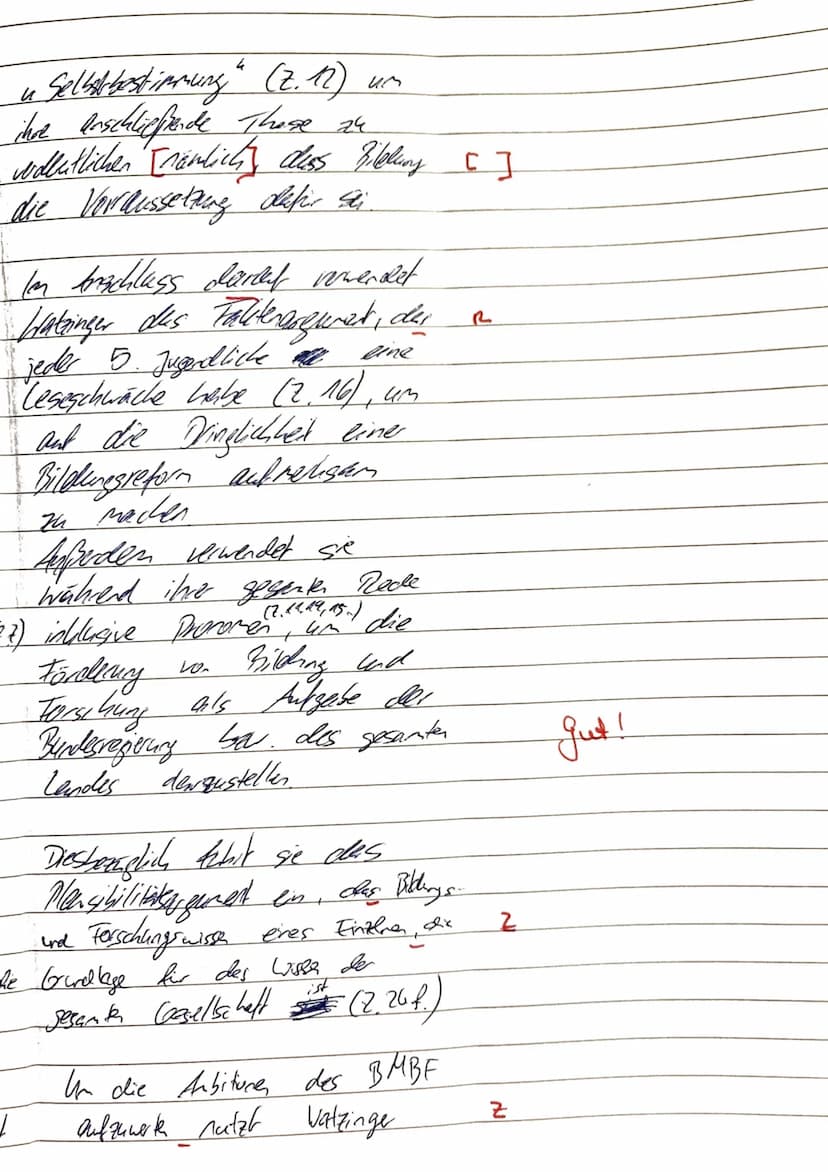 „Selbstbestimmung" (Z. 12) um
ihre anschließende These zu
verdeutlichen [nämlich] dass Bildung [ ]
die Voraussetzung dafür sei.
Im Anschluss darauf verwendet
Watzinger das Faktenargument, das R
jeder 5. Jugendliche eine
Leseschwäche habe (Z. 16), um
auf die Dringlichkeit einer
Bildungsreform aufmerksam
zu machen
Außerdem verwendet sie
während ihrer gesamten Rede
(Z. 11, 14, 15.)
inklusive Pronomen, um die
Förderung von Bildung und
Forschung als Aufgabe der
Bundesregierung bzw. des gesamten
Landes darzustellen. gut!
Diesbezüglich führt sie das
Plausibilitätsargument ein, das Bildungs-
und Forschungswissen eines Einzelnen, die Z
Grundlage für das Wissen der
gesamten Gesellschaft ist (Z. 26 f.)
Um die Ambitionen des BMBF
aufzuwerten nutzt Watzinger Z